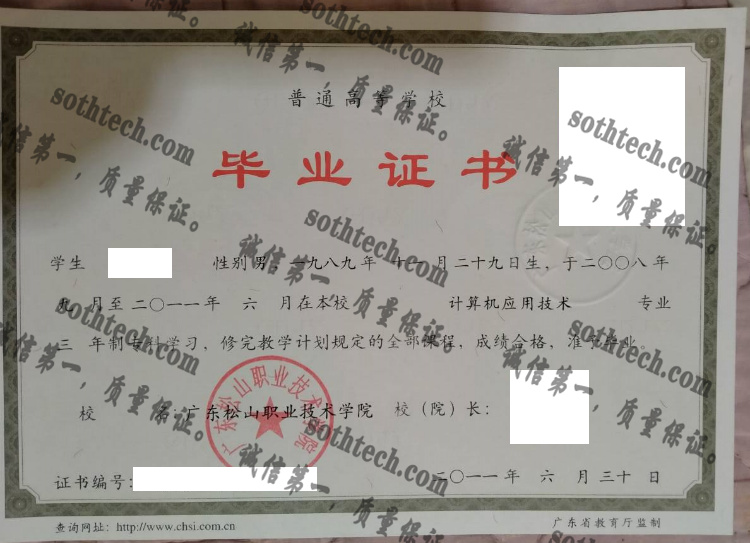 普通高等学校
毕业证书
学生 性别男，一九八九年 十一月二十九日生，于二〇〇八年
九 月至二〇一一年 六 月在本校 计算机应用技术 专业
三 年制专科学习，修完教学计划规定的全部课程，成绩合格，准予毕业。
校 名：广东松山职业技术学院 校（院）长：
广东松山职业技术学院
证书编号：
二〇一一年 六 月三十日
查询网址：http://www.chsi.com.cn
广东省教育厅监制
sothtech.com
诚信第一，质量保证。
sothtech.com
诚信第一，质量保证。
sothtech.com
诚信第一，质量保证。
sothtech.com
诚信第一，质量保证。
sothtech.com
诚信第一，质量保证。
sothtech.com
诚信第一，质量保证。
sothtech.com
诚信第一，质量保证。